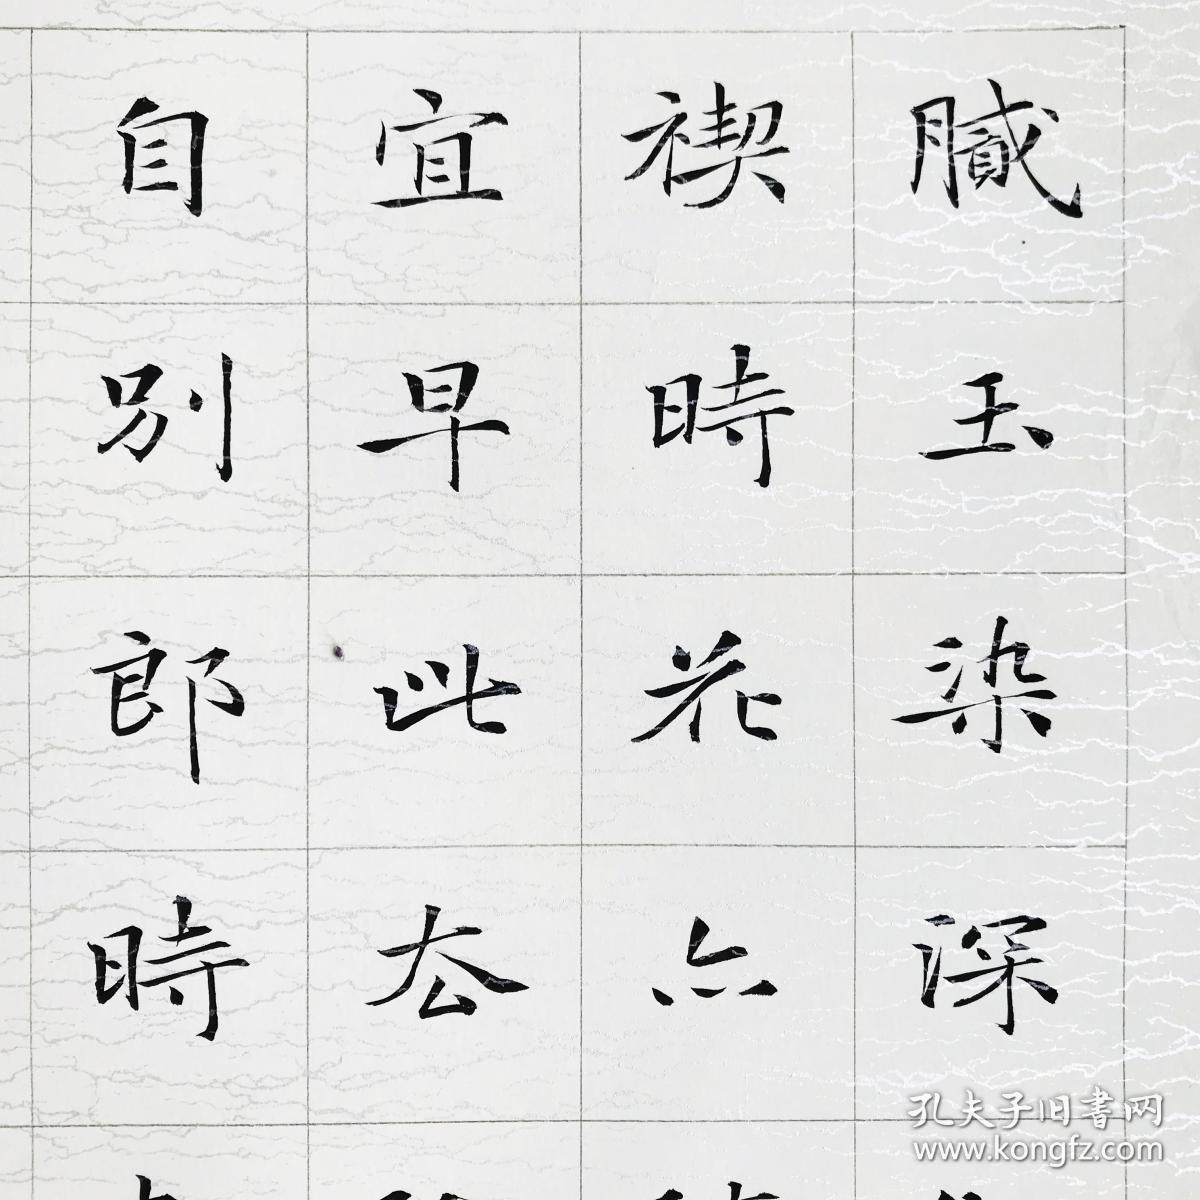 膩玉染深
禊時花亦
宜早此厺
自別郎時
孔夫子旧書网
www.kongfz.com